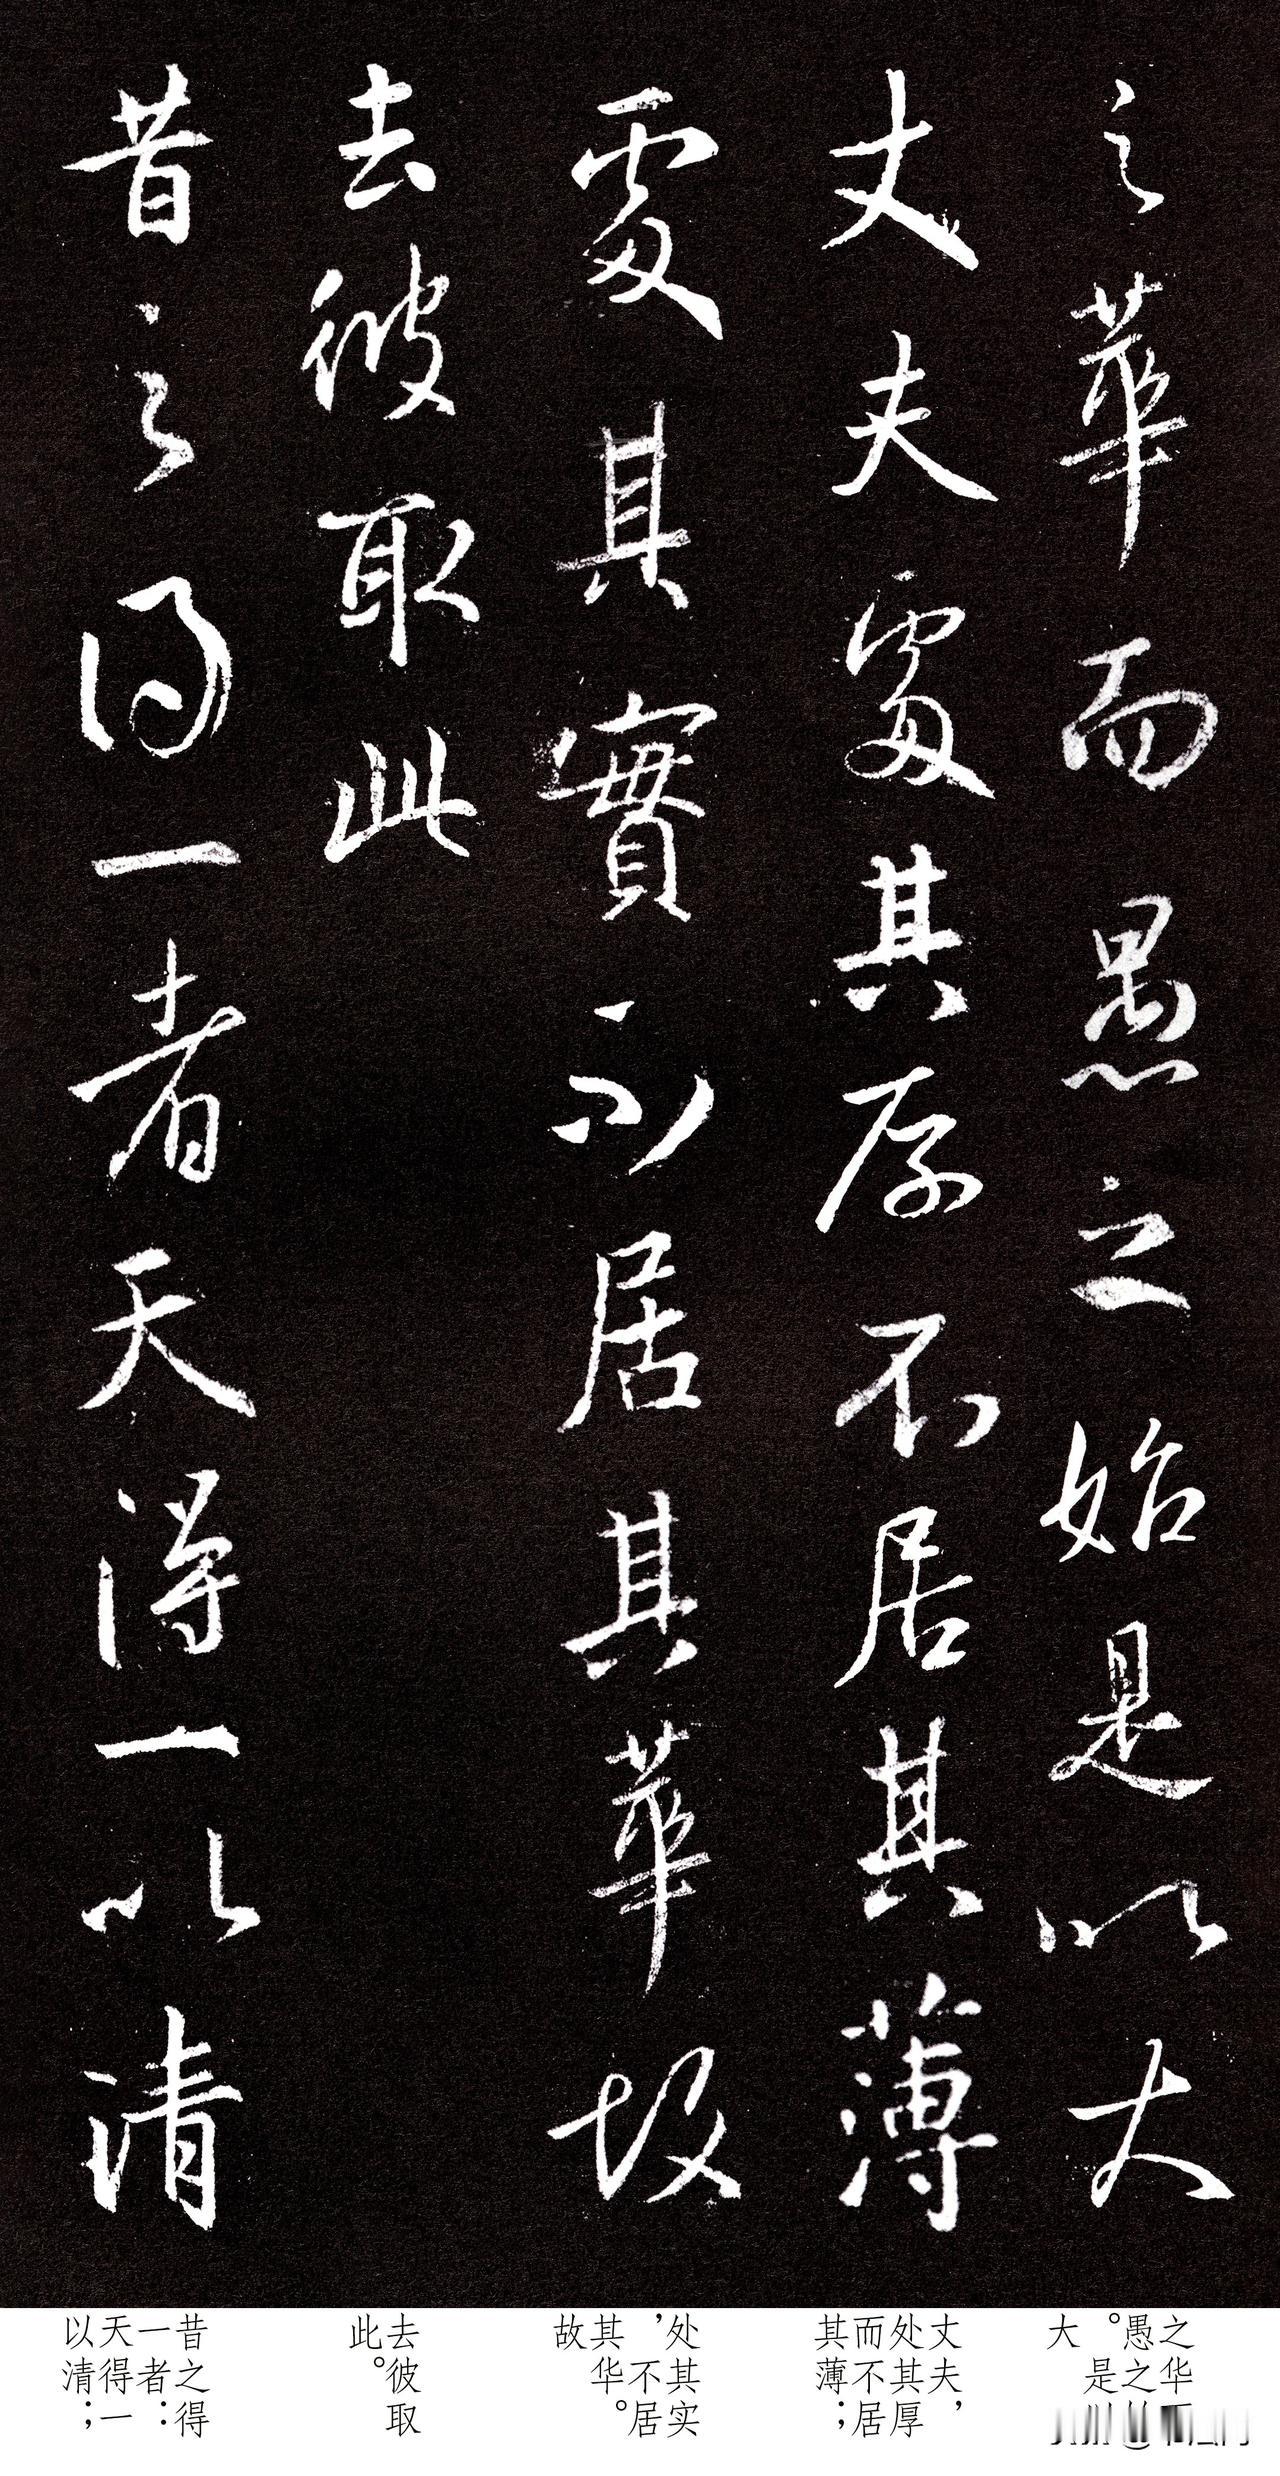 之華而愚之始是以大
丈夫處其厚不居其薄
處其實不居其華故
去彼取此
昔之得一者天得一以清
之华
愚之
。是
大
丈夫，
处其厚
而不居
其薄；
处其实
，不居
其华。
故
去彼取
此。
昔之得
一者：
天得一
以清；